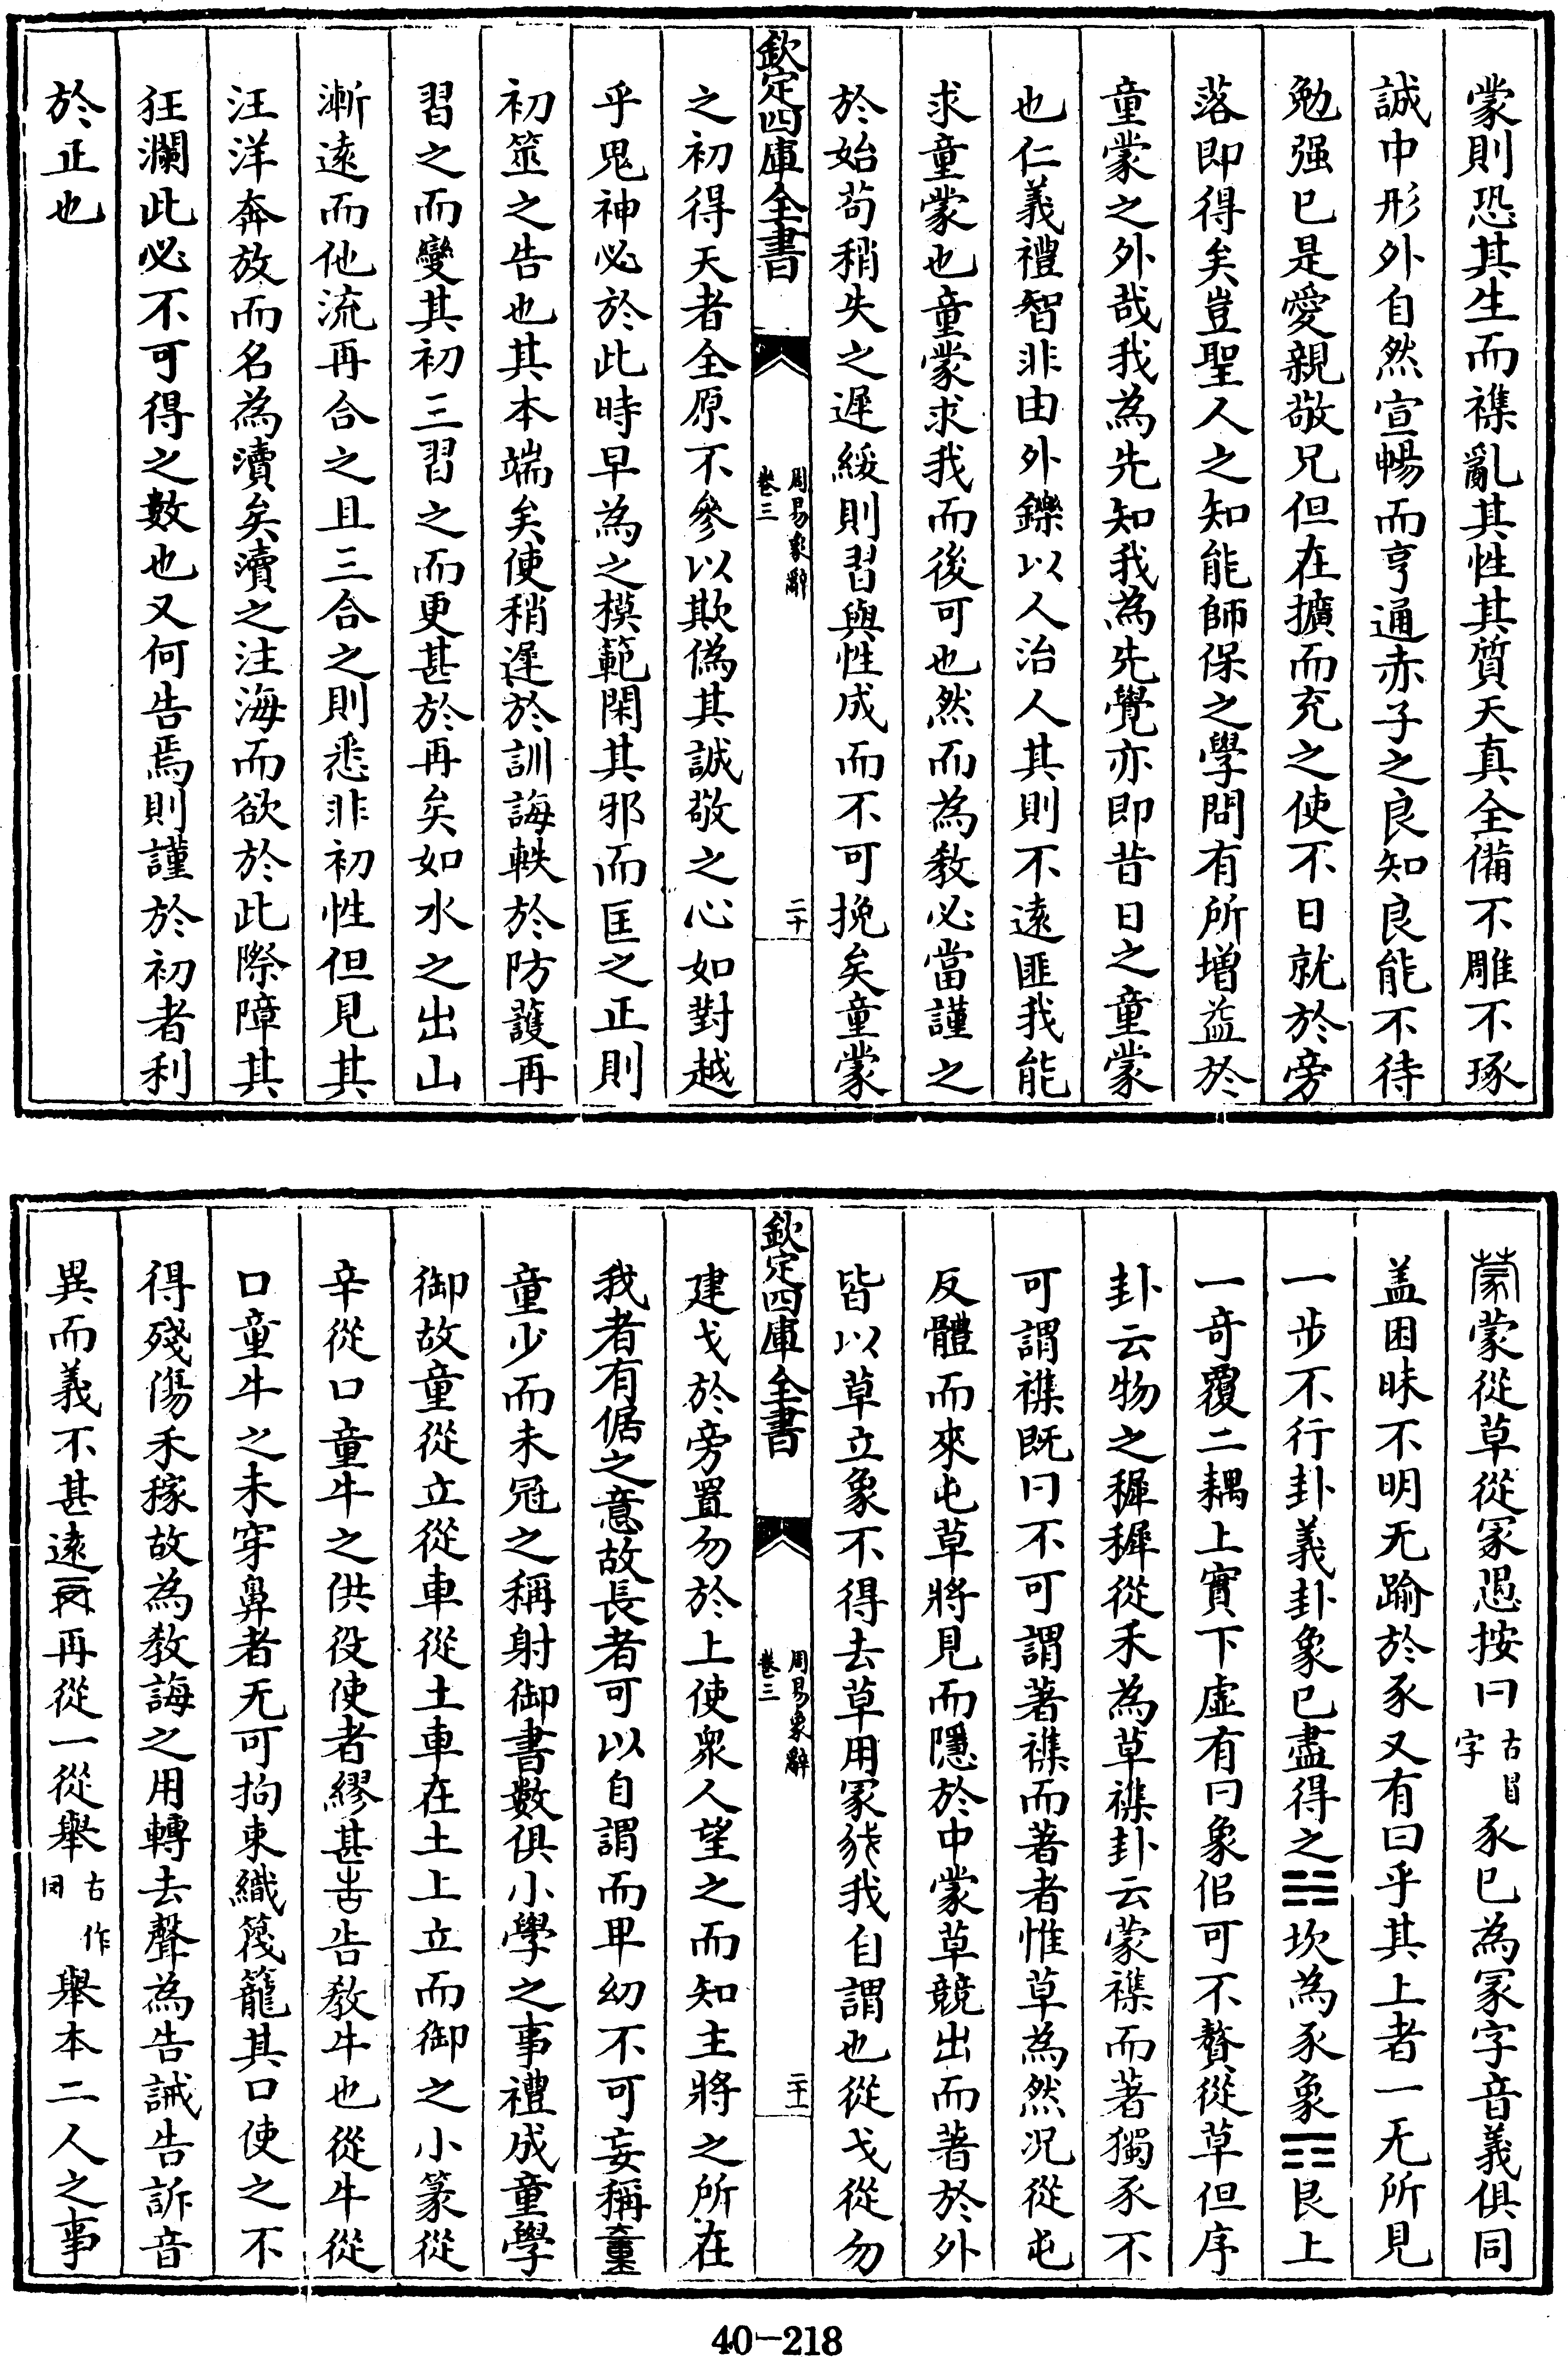 蒙則恐其生而襍亂其性其質天真全備不雕不琢
誠中形外自然宣暢而亨通赤子之良知良能不待
勉强已是愛親敬兄但在擴而充之使不日就於旁
落即得矣豈聖人之知能師保之學問有所增益於
童蒙之外哉我為先知我為先覺亦即昔日之童蒙
也仁義禮智非由外鑠以人治人其則不遠匪我能
求童蒙也童蒙求我而後可也然而為教必當謹之
於始苟稍失之遲緩則習與性成而不可挽矣童蒙
欽定四庫全書
周易象辭
卷三
二十
之初得天者全原不參以欺偽其誠敬之心如對越
乎鬼神必於此時早為之模範閑其邪而匡之正則
初筮之告也其本端矣使稍遲於訓誨軼於防護再
習之而變其初三習之而更甚於再矣如水之出山
漸遠而他流再合之且三合之則悉非初性但見其
汪洋奔放而名為瀆矣瀆之注海而欲於此際障其
狂瀾此必不可得之數也又何告焉則謹於初者利
於正也
蒙從草從冡愚按曰古冒字豕已為冡字音義俱同
盖困昧不明无踰於豕又有曰乎其上者一无所見
一步不行卦義卦象已盡得之☵坎為豕象☶艮上
一奇覆二耦上實下虛有曰象侣可不贅從草但序
卦云物之穉穉從禾為草襍卦云蒙襍而著獨豕不
可謂襍既曰不可謂著襍而著者惟草為然况從屯
反體而來屯草將見而隱於中蒙草競出而著於外
皆以草立象不得去草用冡𢦠我自謂也從戈從勿
欽定四庫全書
周易象辭
卷三
二十一
建戈於旁置勿於上使衆人望之而知主將之所在
我者有倨之意故長者可以自謂而卑幼不可妄稱童
童少而未冠之稱射御書數俱小學之事禮成童學
御故童從立從車從土車在土上立而御之小篆從
辛從口童牛之供役使者繆甚告告教牛也從牛從
口童牛之未穿鼻者无可拘束織筏籠其口使之不
得殘傷禾稼故為教誨之用轉去聲為告誡告訴音
異而義不甚遠再再從一從舉古作㒳舉本二人之事
40-218